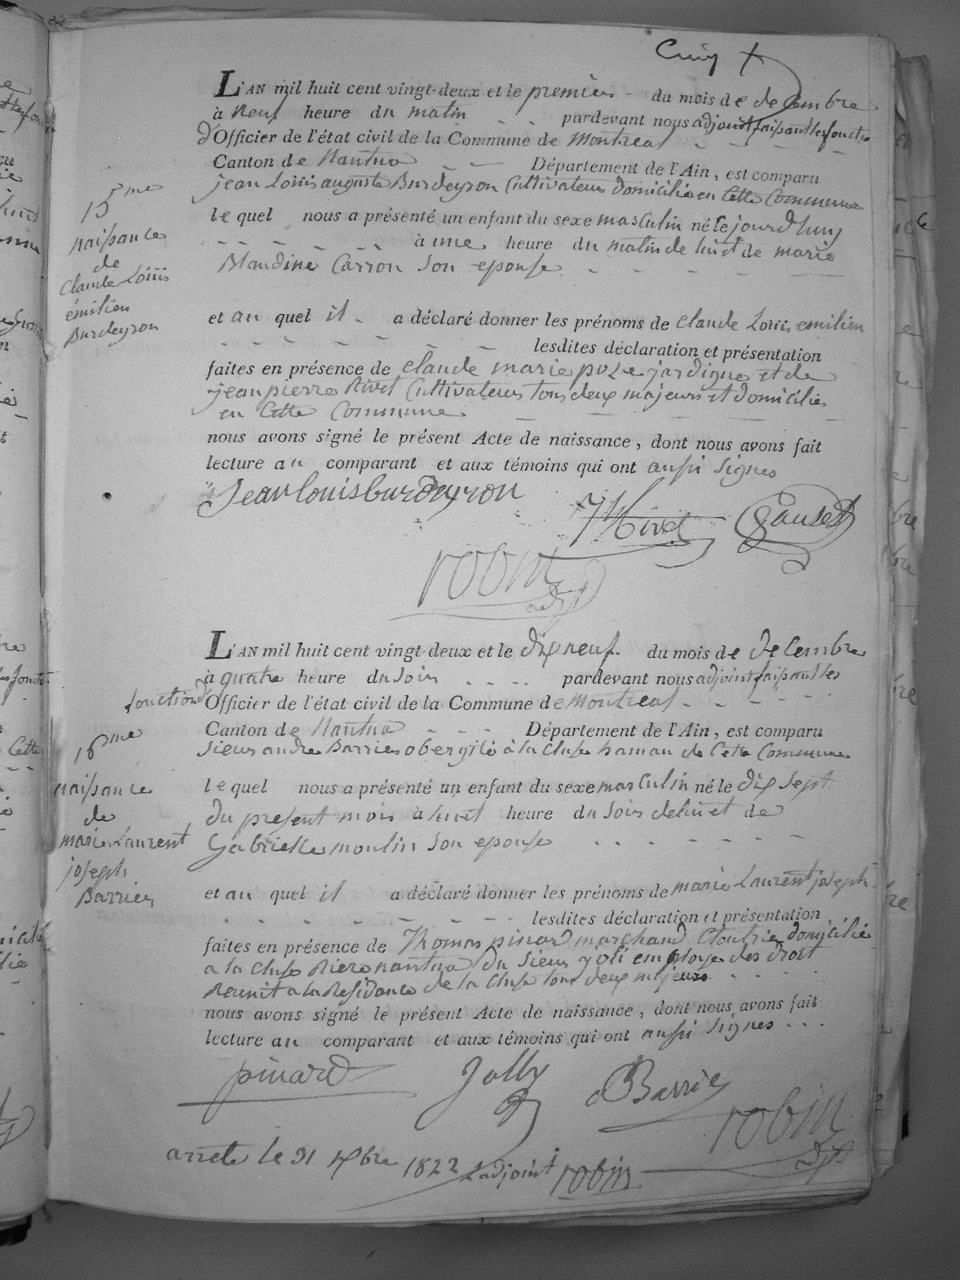 Cinq
L'AN mil huit cent vingt-deux et le premier - du mois de decembre
à neuf heure du matin pardevant nous adjoint faisant les fonctio
d'Officier de l'état civil de la Commune de Montreal
Canton de Nantua - Département de l'Ain, est comparu
jean Louis auguste Burdeyron Cultivateur domicilié en Cette Commune
lequel nous a présenté un enfant du sexe masculin né le jourd'huy
à une heure du matin de lui et de marie
Blandine Carron Son epouse
15me
naissance
de
Claude Louis
émilien
Burdeyron
et au quel il a déclaré donner les prénoms de Claude Louis emilien
lesdites déclaration et présentation
faites en présence de Claude marie et de
jean pierre Rivet Cultivateurs tous deux majeurs et domiciliés
en Cette Commune
nous avons signé le présent Acte de naissance, dont nous avons fait
lecture au comparant et aux témoins qui ont aussi signés
Jean louis burdeyron
robin
adjt
L'AN mil huit cent vingt-deux et le dix neuf du mois de decembre
à quatre heure du soir pardevant nous adjoint faisant les
fonction d'Officier de l'état civil de la Commune de Montreal
Canton de Nantua Département de l'Ain, est comparu
Sieur andré Barrier à la Cluse hamau de Cette Commune
16me
naissance
de
marie Laurent
joseph
Barrier
lequel nous a présenté un enfant du sexe masculin né le dix Sept
du present mois à huit heure du soir de lui et de
Gabrielle moulin Son epouse
et au quel il a déclaré donner les prénoms de marie Laurent joseph
lesdites déclaration et présentation
faites en présence de Thomas pinard marchand Cloutrier domicilié
a la Cluse nantua du Sieur employé des droit
Reunit a la Residance de la Cluse tous deux majeurs
nous avons signé le présent Acte de naissance, dont nous avons fait
lecture au comparant et aux témoins qui ont aussi signés
pinard Jolly Barrier
robin
adjt
arreté le 31 Xbre 1822 L'adjoint robin